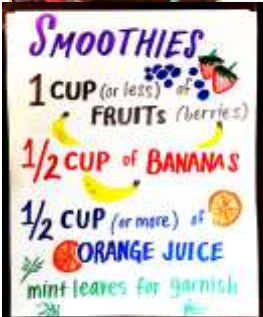 SMOOTHIES
1 CUP (or less) of
FRUITS (berries)
1/2 CUP of BANANAS
1/2 CUP (or more) of
ORANGE JUICE
mint leaves for garnish